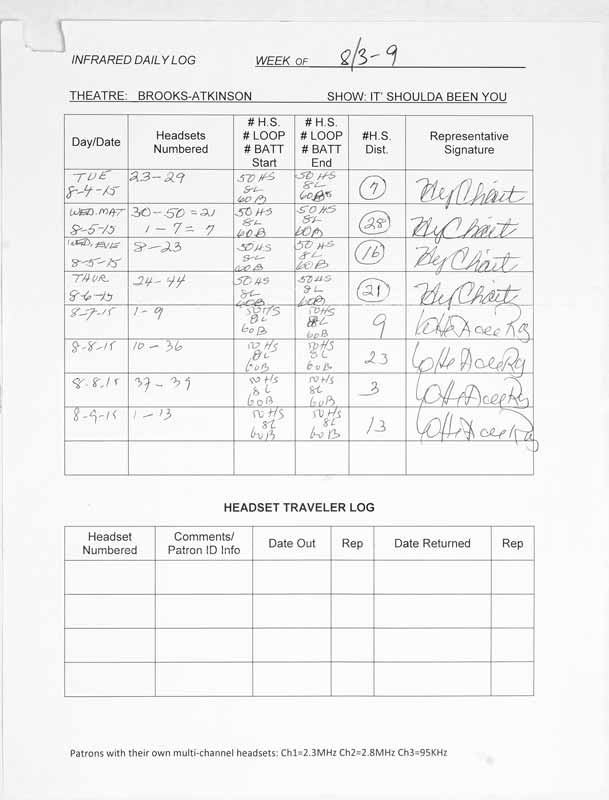 INFRARED DAILY LOG WEEK OF 8/3-9
THEATRE: BROOKS-ATKINSON SHOW: IT' SHOULDA BEEN YOU
Day/Date Headsets Numbered # H.S. # LOOP # BATT Start # H.S. # LOOP # BATT End #H.S. Dist. Representative Signature
TUE 8-4-15 23-29 50 HS 8L 60B 50 HS 8L 60B 7
WED. MAT 8-5-15 30-50=21 1-7=7 50 HS 8L 60B 50 HS 8L 60B 28
WED. EVE 8-5-15 8-23 50 HS 8L 60B 50 HS 8L 60B 16
THUR 8-6-15 24-44 50 HS 8L 60B 50 HS 8L 60B 21
8-7-15 1-9 50 HS 8L 60B 50 HS 8L 60B 9
8-8-15 10-36 50 HS 8L 60B 50 HS 8L 60B 23
8-8-15 37-39 50 HS 8L 60B 50 HS 8L 60B 3
8-9-15 1-13 50 HS 8L 60B 50 HS 8L 60B 13
HEADSET TRAVELER LOG
Headset Numbered Comments/ Patron ID Info Date Out Rep Date Returned Rep
Patrons with their own multi-channel headsets: Ch1=2.3MHz Ch2=2.8MHz Ch3=95KHz